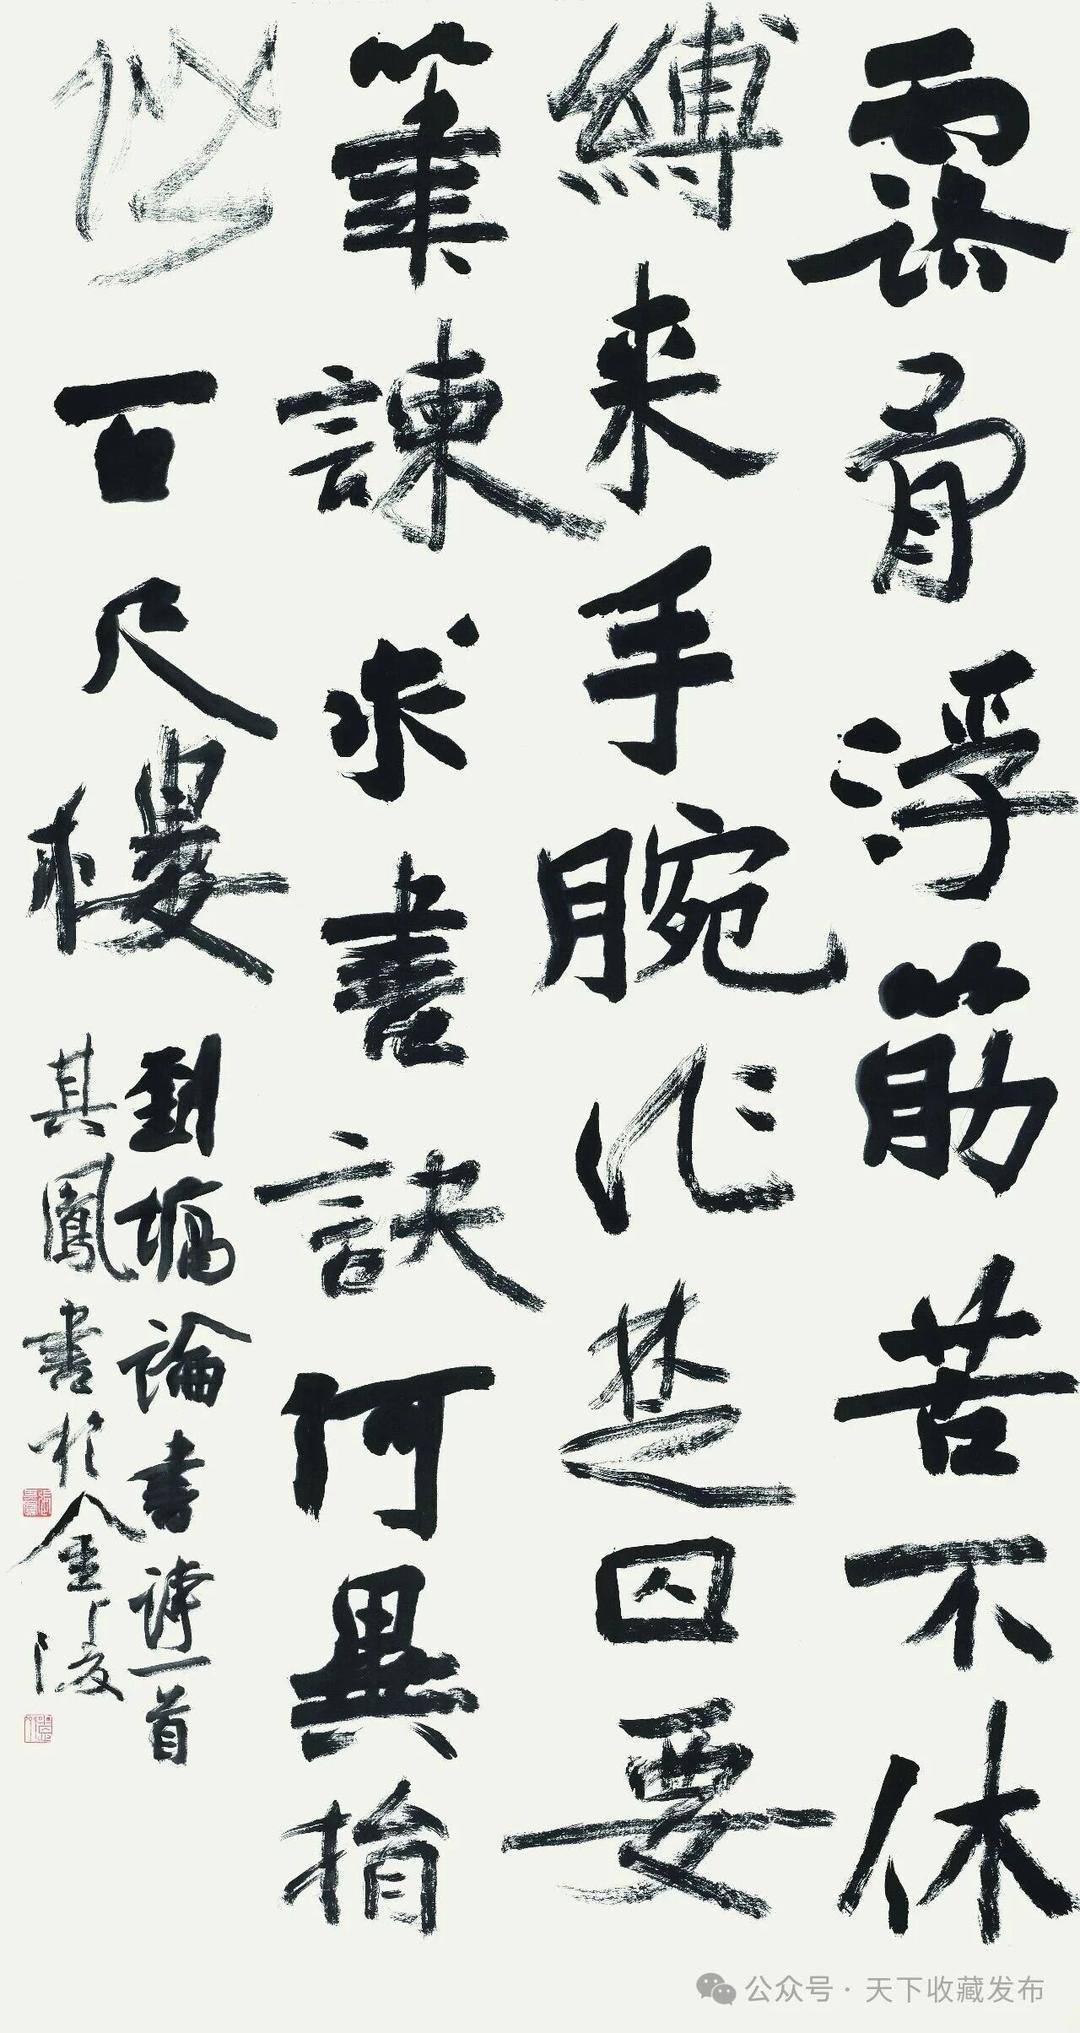 露骨浮筋苦不休
縛来手腕作楚囚要
筆諫求書訣何異捐
百尺樓
劉墉論書詩一首
其鳳書於金陵
公众号·天下收藏发布